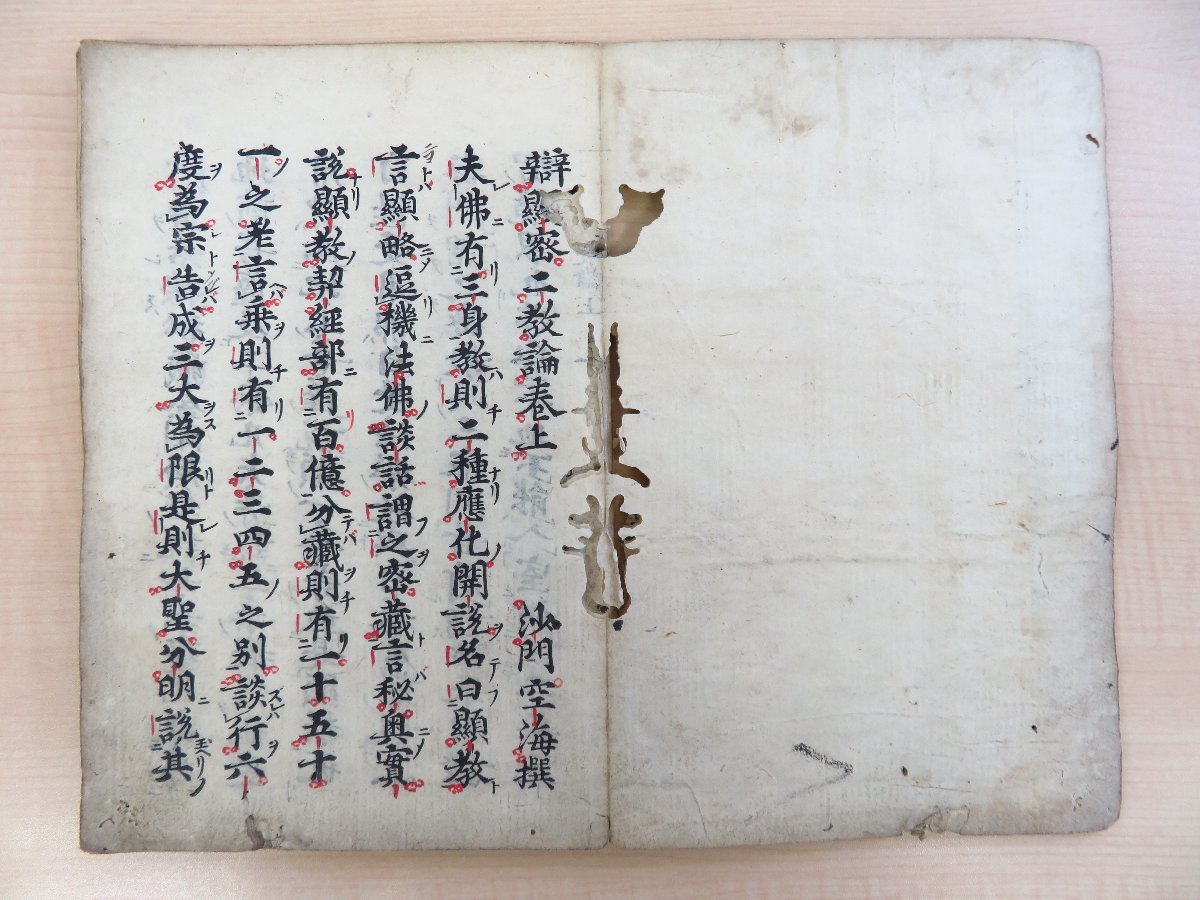 辯顯密二教論卷上　沙門空海撰
夫佛有三身教則二種應化開說名曰顯教
言顯略逗機法佛談話謂之密藏言秘奥實
說顯教契經部有百億分藏則有一十五十
一之差言乘則有一二三四五之別談行六
度為宗告成三大為限是則大聖分明說其